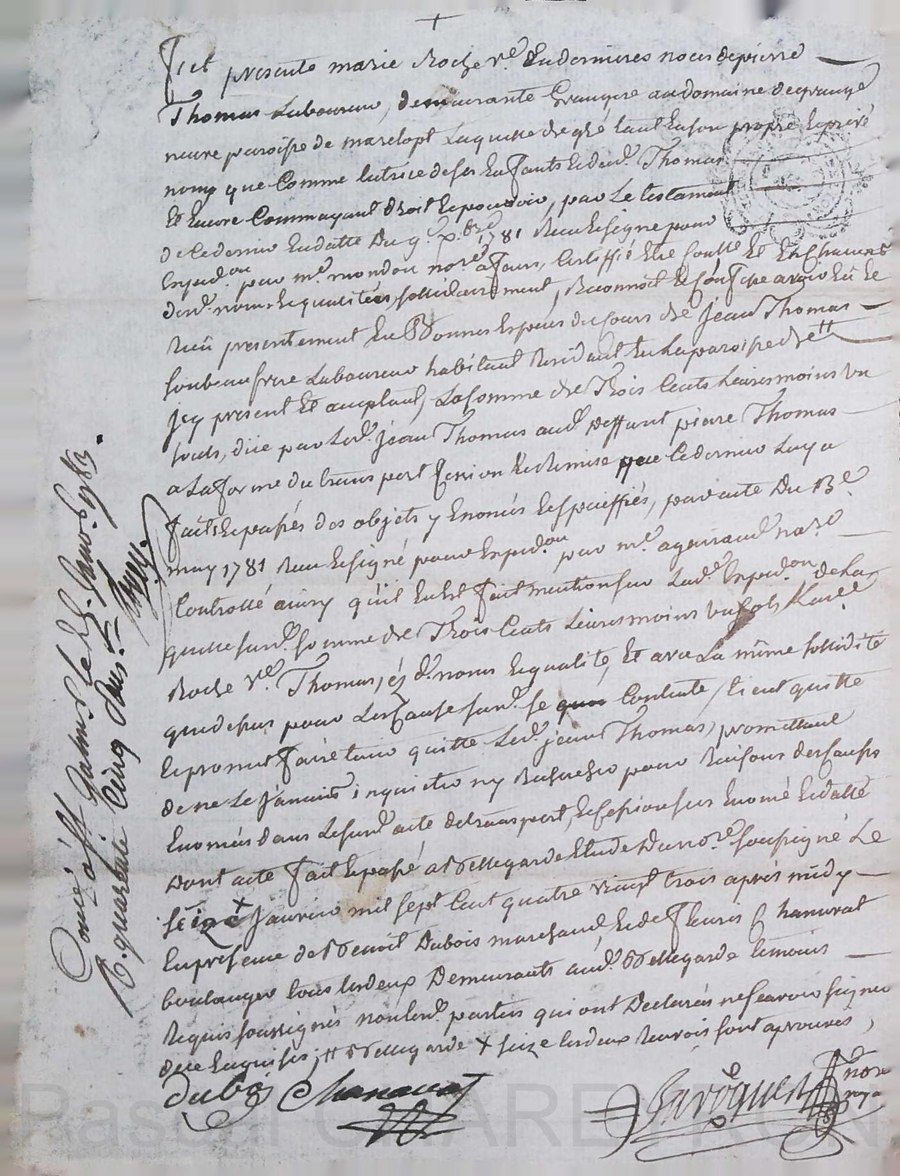 Fut présente marie Roche v.e En dernieres noces de pierre
Thomas Laboureur, demeurante Grangere au domaine de grange
neuve paroisse de marclopt Laquelle de gré tant En son propre Et privé
nom que Comme tutrice de ses Enfants Et dud. Thomas
Et Encore Commayant droit Et pouvoir, par Le testament
de Ce dernier En datte Du 9. 1781 Reçu Et signé pour
Expedon par m.e mondon not.e a feurs,
dud. nom Et qualités, sollidairement, Reconnoit Et Confesse avoir Eü Et
Reçû présentement En Bonnes Espèces du Cours de Jean Thomas
son beau frere Laboureur habitant Residant En La paroisse de
Icy présent Et acceptant, La somme de Trois Cents Livres moins un
sols, düe par Led. Jean Thomas aud. deffunt pierre Thomas
a La forme du transport Cession Et Remise que Ce dernier Luy a
faits Et passés des objets y Enoncés Et spéciffiés, par acte Du 13.e
may 1781 Reçu Et signé pour Expedon par m.e not.e
Controllé ainsy qu'il En Est fait mention sur Lad. Expedon de La
quelle susd. somme de Trois Cents Livres moins un sols Lad.e
Roche v.e Thomas, ez d. noms Et qualité, Et avec La même sollidité
que dessus pour Les Causes susd. se Contente, tient quitte
Et promet faire tenir quitte Led. jean Thomas, promettant
de ne Le jamais inquieter ny Rechercher pour Raisons des Causes
Enoncées dans Le susd. acte de transport, Et Cession sus Enoncé Et datté
Dont acte fait Et passé a Bellegarde Etude Du not.e soussigné Le
seize x Janvier mil sept Cent quatre vingt trois après midy
En présence de Benoit Dubois marchand Et de fleuris Chanavat
boulanger tous Les deux Demeurants aud. Bellegarde témoins
Requis soussignés non Lesd. parties qui ont Declarées ne sçavoir signer
de ce Enquises, # Bellegarde x seize Les deux Renvois sont aprouvés,
dubois Chanavat
not.e
royal
à st Galmier le
R. quarante Cinq sous
Pascal